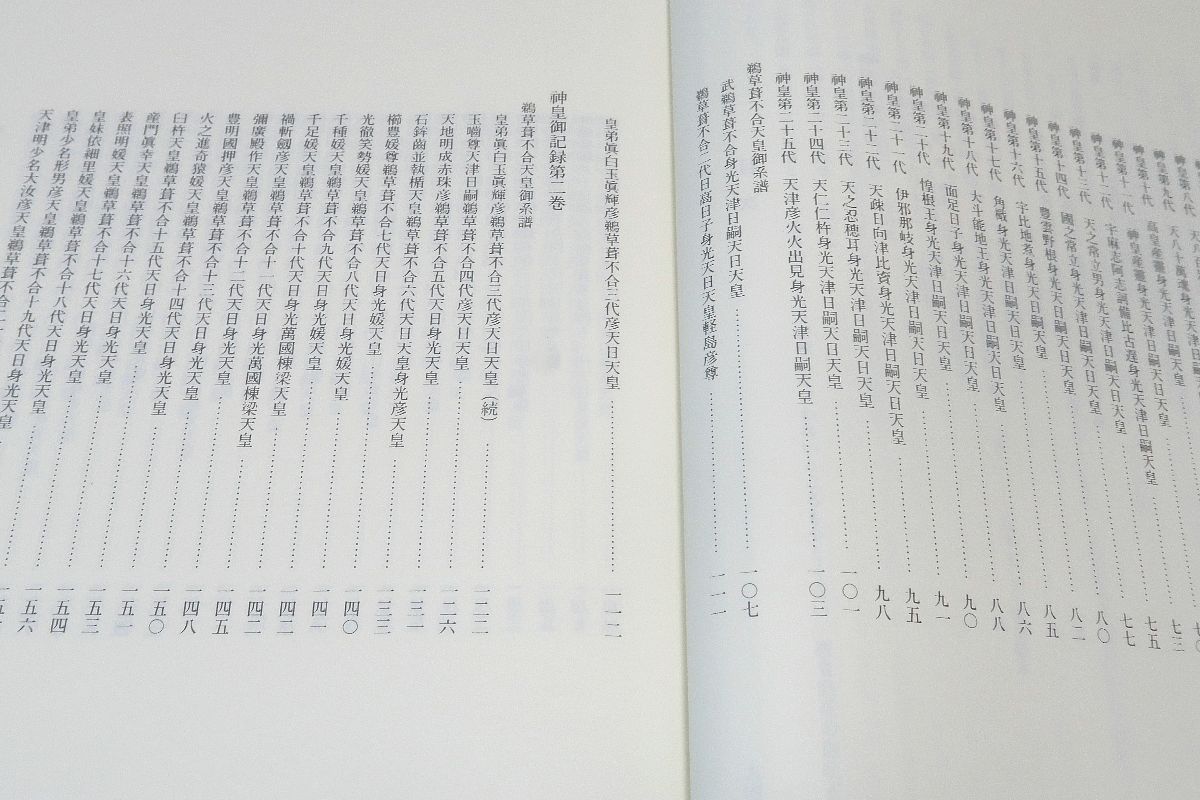 神皇第九代
神皇第十代 高皇産靈身光天津日嗣天日天皇 七五
神皇第十一代 神皇産靈身光天津日嗣天皇 七七
神皇第十二代 宇麻志阿志訶備比古遅身光天津日嗣天日天皇 八〇
神皇第十三代 天之常立男身光天津日嗣天日天皇
神皇第十四代 國之常立身光天津日嗣天日天皇 八二
神皇第十五代 豊雲野根身光天日嗣天日天皇 八五
神皇第十六代 宇比地煮身光天日嗣天皇 八六
神皇第十七代 角樴身光天津日嗣天日天皇 八八
神皇第十八代 大斗能地王身光天津日嗣天日天皇 九〇
神皇第十九代 面足日子身光天津日嗣天日天皇 九一
神皇第二十代 惶根王身光天津日嗣天日天皇
神皇第二十一代 伊邪那岐身光天津日嗣天日天皇 九五
神皇第二十二代 天疎日向津比賣身光天津日嗣天日天皇 九八
神皇第二十三代 天之忍穂耳身光天津日嗣天日天皇 一〇一
神皇第二十四代 天仁仁杵身光天津日嗣天日天皇 一〇三
神皇第二十五代 天津彦火火出見身光天津日嗣天皇
鵜草葺不合天皇御系譜
武鵜草葺不合身光天津日嗣天日天皇 一〇七
鵜草葺不合二代日高日子身光天日天皇軽島彦尊 一一一
皇弟眞白玉眞輝彦鵜草葺不合三代彦天日天皇 一一二
神皇御記録第二巻
鵜草葺不合天皇御系譜
皇弟眞白玉眞輝彦鵜草葺不合三代彦天日天皇（続） 一二二
玉嚙尊天津日嗣鵜草葺不合四代彦天日天皇 一二六
天地明成赤珠彦鵜草葺不合五代天日身光天皇 一三一
石鉾歯並執楯天皇鵜草葺不合六代天日天皇身光彦天皇 一三三
櫛豊媛尊鵜草葺不合七代天日身光媛天皇 一四〇
光徹笑勢媛天皇鵜草葺不合八代天日身光媛天皇 一四一
千種媛天皇鵜草葺不合九代天日身光媛天皇 一四二
千足媛天皇鵜草葺不合十代天日身光萬國棟梁天皇 一四二
禍斬劔彦天皇鵜草葺不合十一代天日身光萬國棟梁天皇
彌廣殿作天皇鵜草葺不合十二代天日身光天皇 一四五
豊明國押彦天皇鵜草葺不合十三代天日身光天皇 一四八
火之進奇猿媛天皇鵜草葺不合十四代天日身光天皇 一五〇
臼杵天皇鵜草葺不合十五代天日身光天皇 一五一
産門眞幸天皇鵜草葺不合十六代天日身光天皇 一五三
表照明媛天皇鵜草葺不合十七代天日身光天皇 一五四
皇妹依細里媛天皇鵜草葺不合十八代天日身光天皇 一五六
皇弟少名形男彦天皇鵜草葺不合十九代天日身光天皇
天津明少名大汝彦天皇鵜草葺不合二十